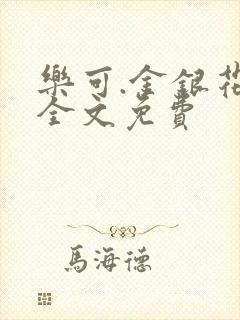 樂可.金銀花
全文免費
馬海德